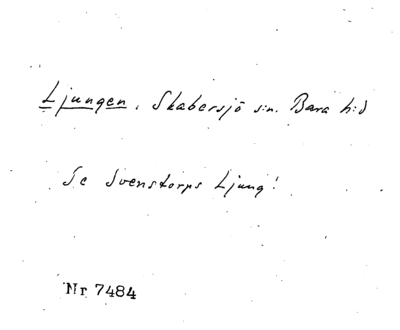 Ljungen, Skabersjö s:n. Bara h:d
Se Svenstorps Ljung!
Nr 7484